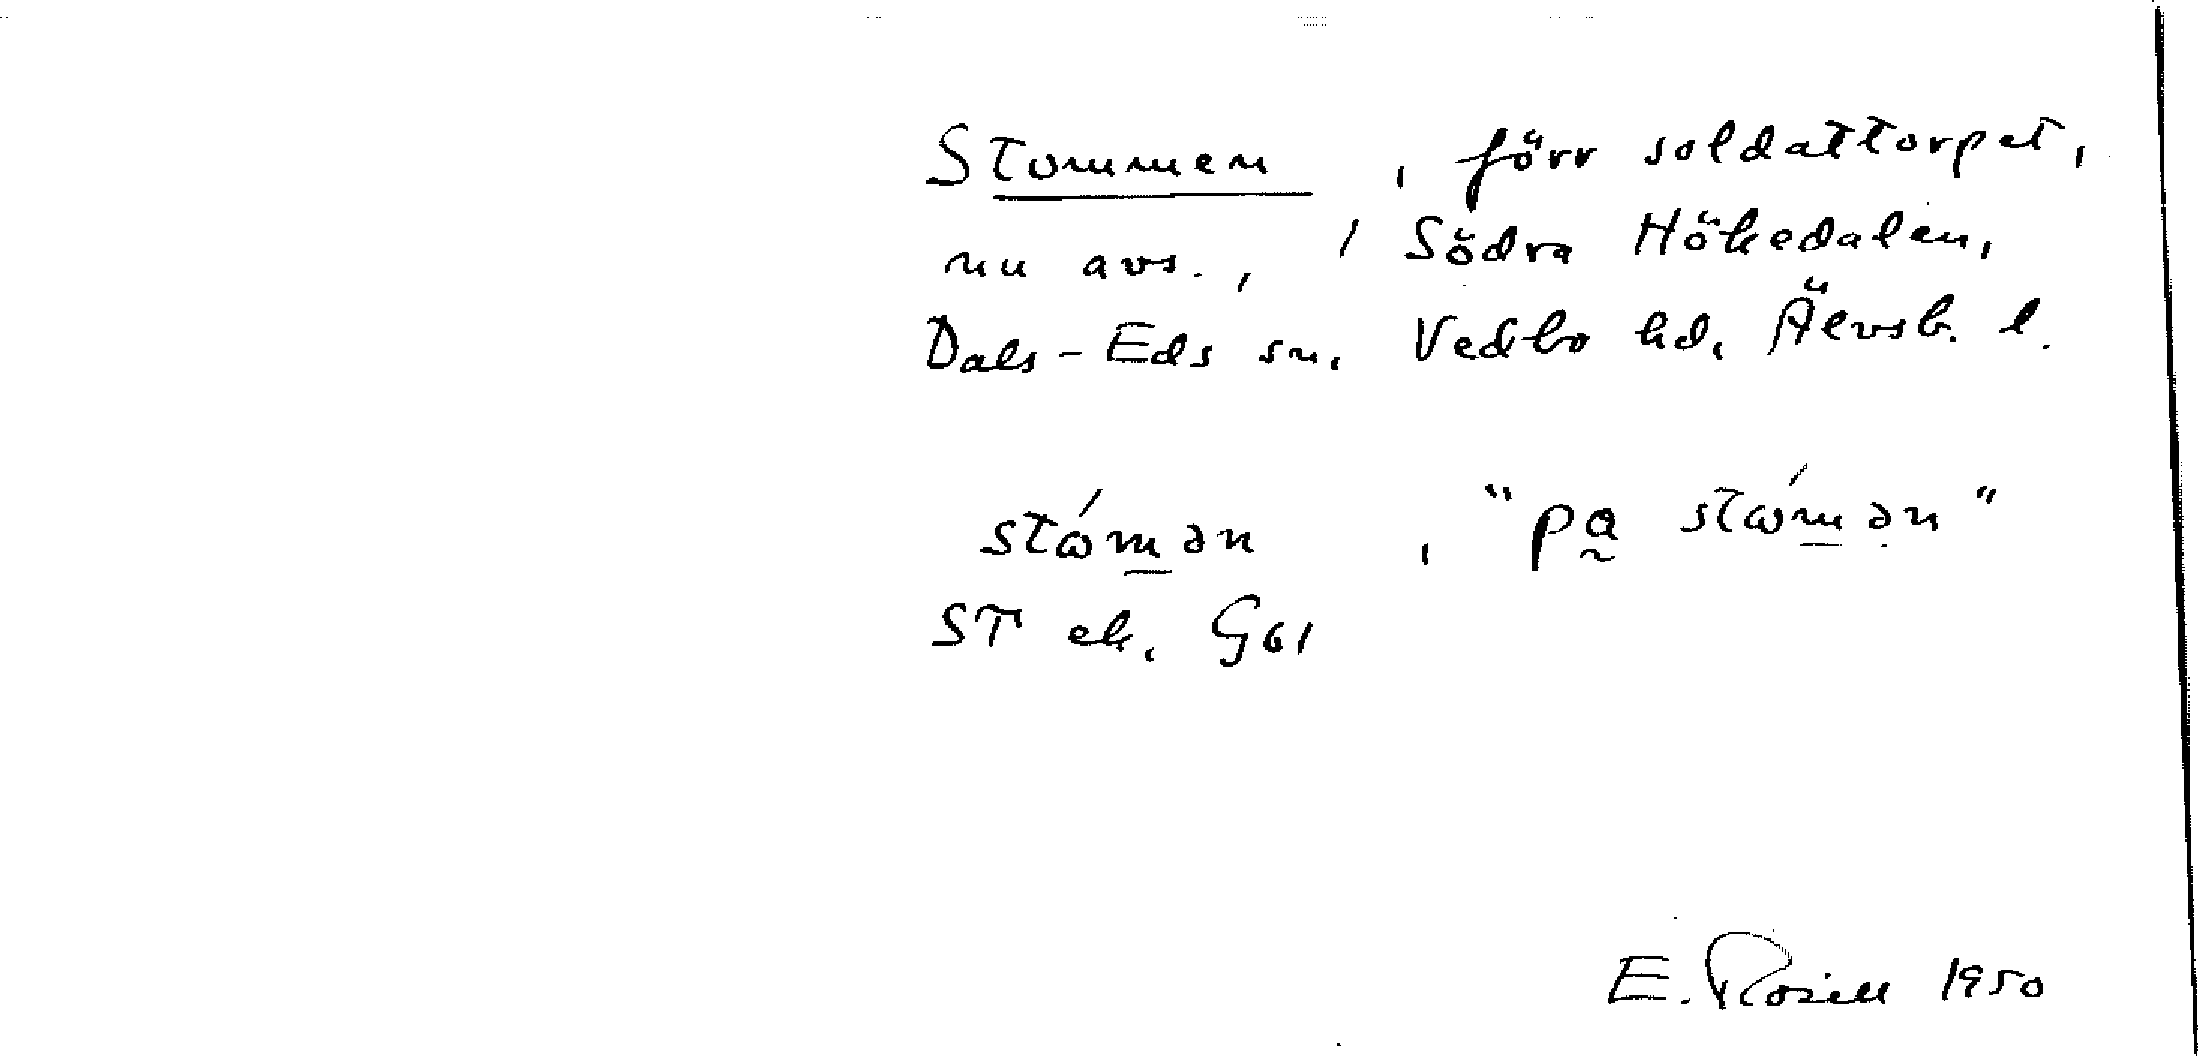 Stommen, förr soldattorpet,
nu avs., i Södra Hökedalen,
Dals-Eds sn. Vedbo hd. Älvsb. l.
stɷ́man, "pa stɷ́mən"
ST ek. G61
E. Rosell 1950